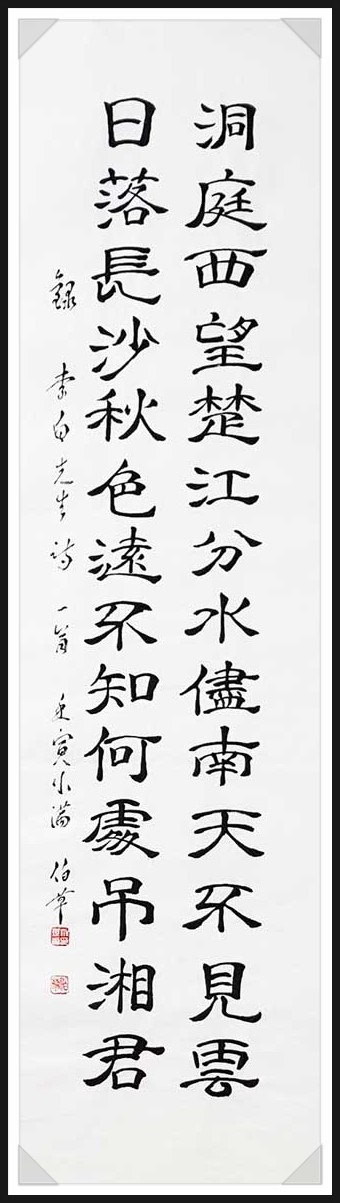 洞庭西望楚江分水儘南天不見雲
日落長沙秋色遠不知何處吊湘君
錄 李白先生詩一首 壬寅小滿 伯華